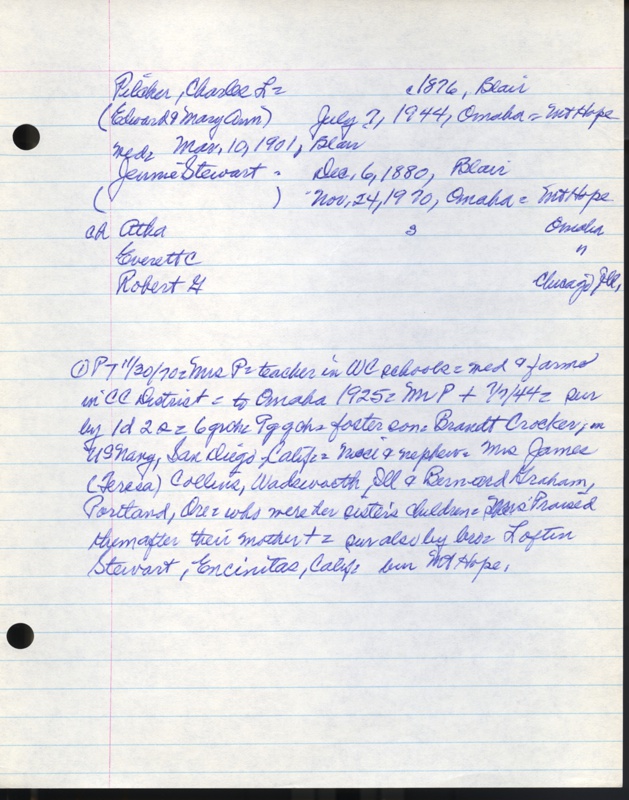 Pilcher, Charles L = c1876, Blair
(Edward & Mary Ann) July 7, 1944, Omaha = Mt Hope
med = Mar, 10, 1901, Blair
Jennie Stewart = Dec. 6, 1880, Blair
( ) Nov, 24, 1970, Omaha = Mt Hope
ch Atha s Omaha
Everett C "
Robert G Chicago, Ill,
① PT 11/30/70 = Mrs P = teacher in WC schools = med & farms
in CC District = to Omaha 1925 = Mr P + 7/7/44 = sur
by 1d 2s = 6 grch 9 ggch = foster son = Brandt Crocker, in
US Navy, San Diego, Calif = & nephew = Mrs James
(Teresa) Collins, Wadsworth, Ill & Bernard Graham,
Portland, Ore = who were her sister's children = Mrs P raised
them after their mother + = sur also by bro = Loftin
Stewart, Encinitas, Calif bur Mt Hope,